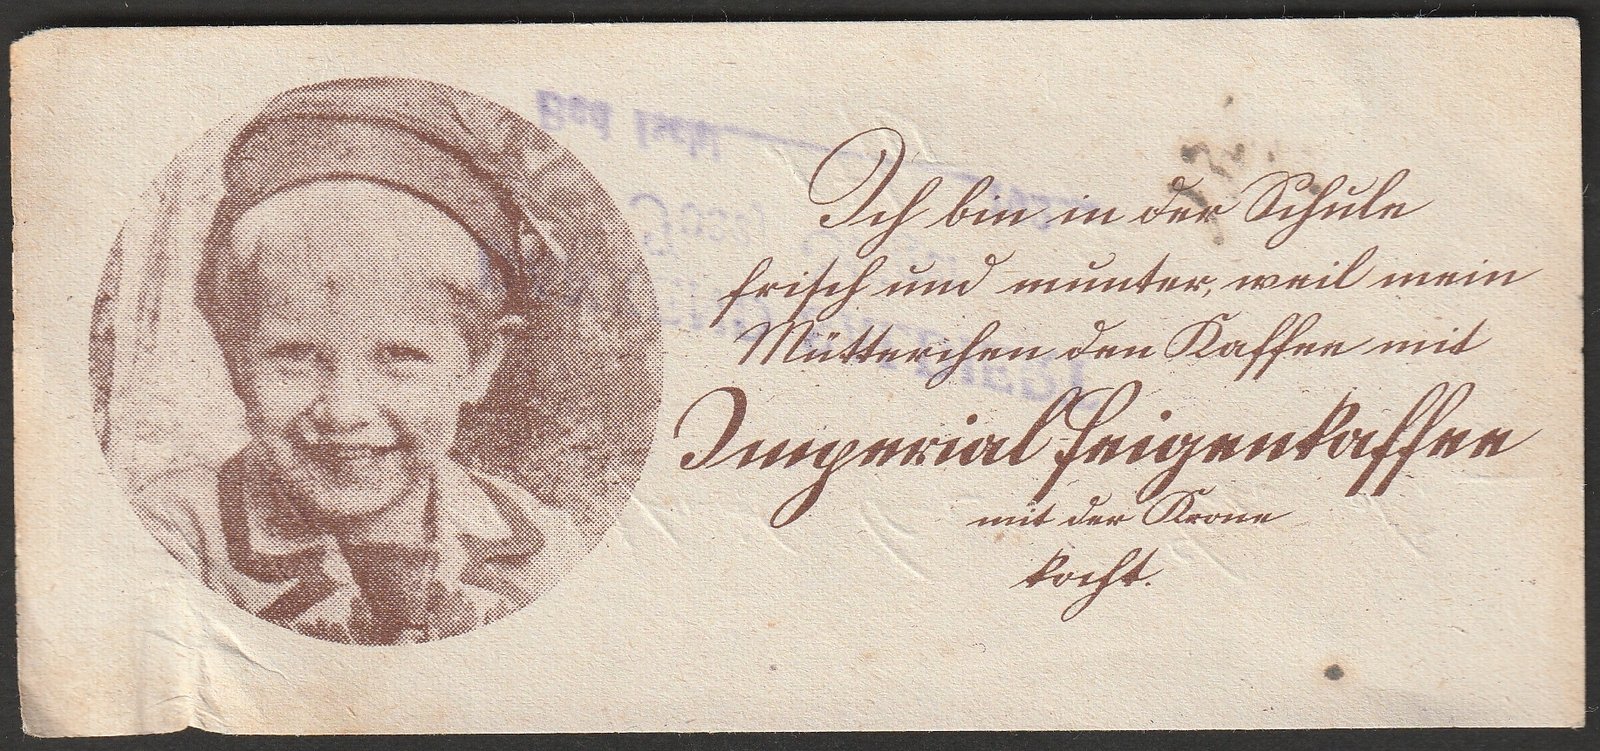 Ich bin in der Schule
frisch und munter, weil mein
Mütterchen den Kaffee mit
Imperial Feigenkaffee
mit der Krone
kocht.
Bad Ischl